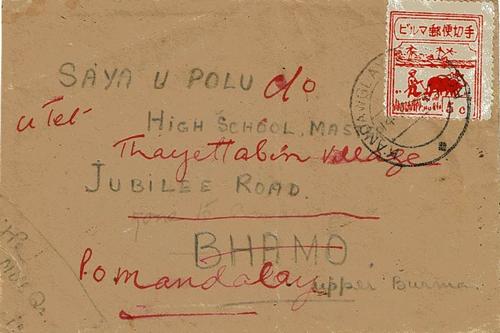 ビルマ郵便切手
5 c
SAYA U POLU c/o
U Tet
HIGH SCHOOL, MAS
Thayettabin village
JUBILEE ROAD
BHAMO
P.O mandalay
upper Burma